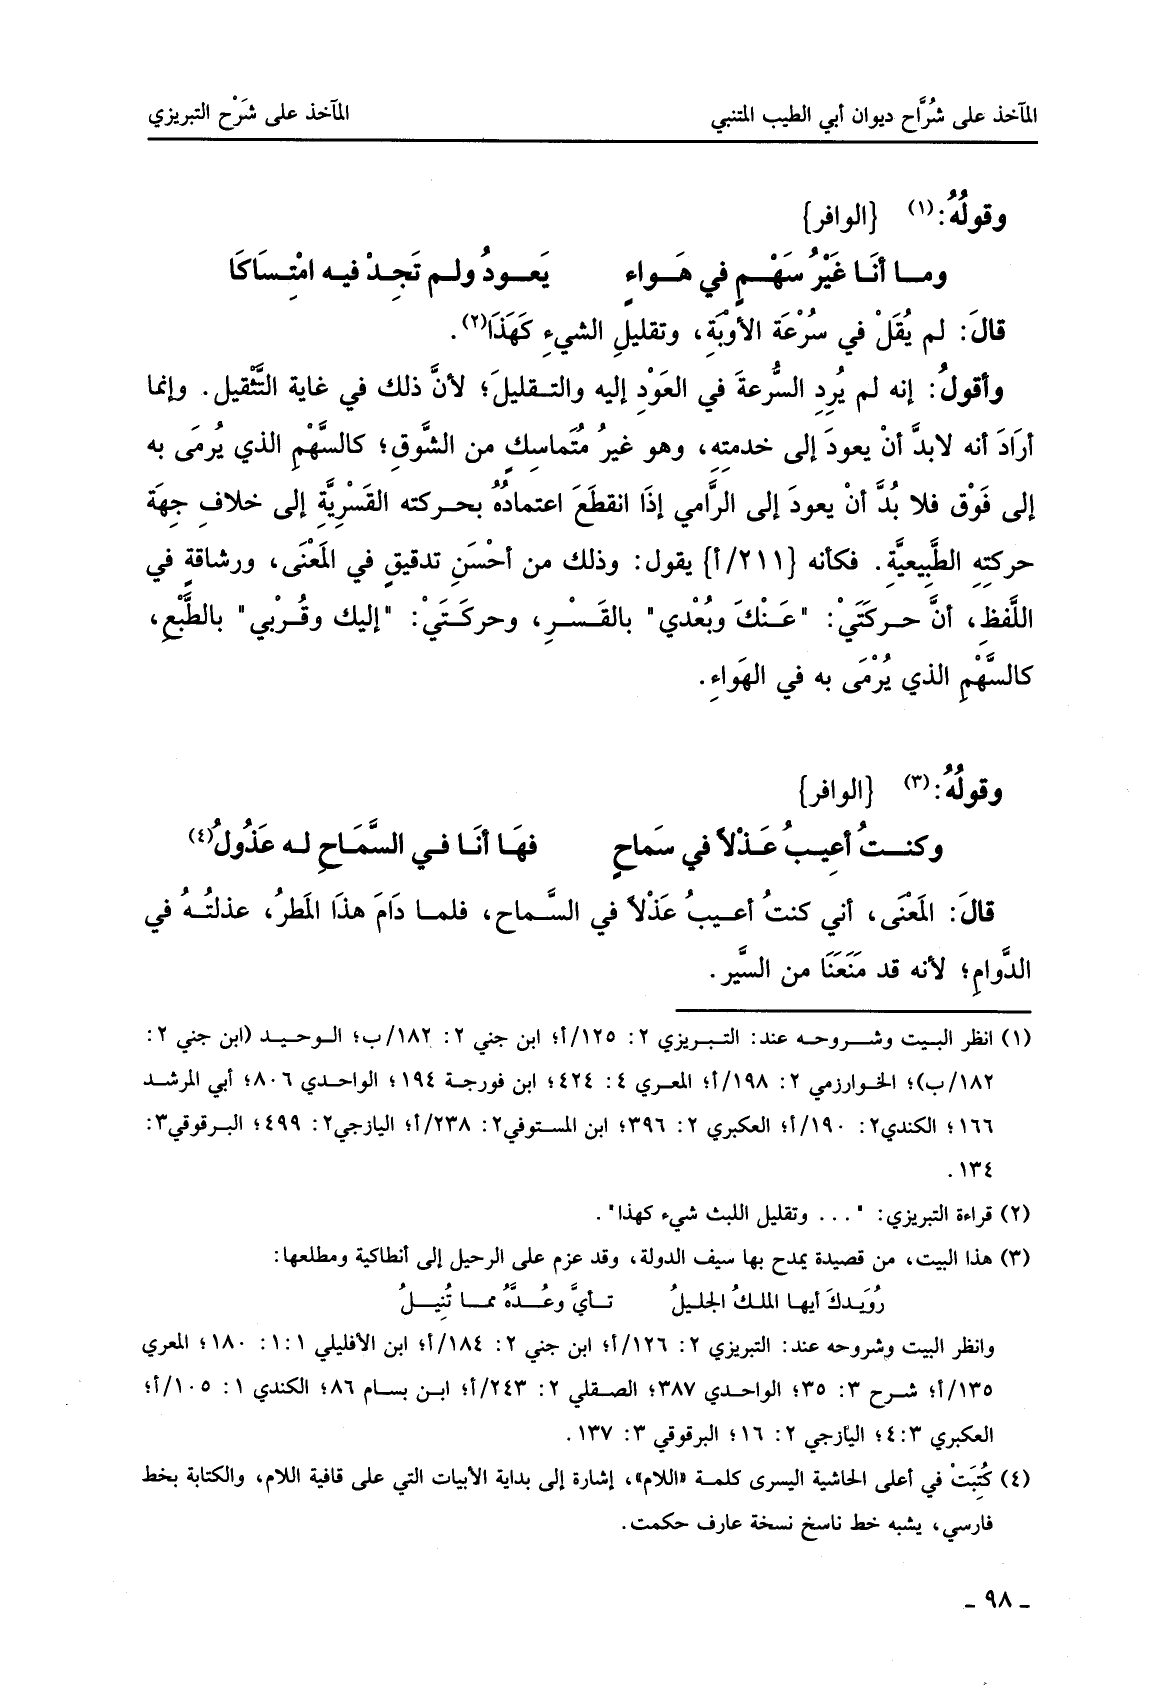 المآخذ على شُرَّاح ديوان أبي الطيب المتنبي المآخذ على شَرْح التبريزي
وقولُهُ:(١) {الوافر}
وما أنَا غَيْرُ سَهْمٍ في هَواءٍ يَعودُ ولم تَجِدْ فيه امْتِسَاكَا
قالَ: لم يُقَلْ في سُرْعَة الأوْبَةِ، وتقليلِ الشيءِ كَهَذَا(٢).
وأقولُ: إنه لم يُرِدِ السُّرعةَ في العَوْدِ إليه والتقليلَ؛ لأنَّ ذلك في غاية التَّثْقيل. وإنما
أرَادَ أنه لابدَّ أنْ يعودَ إلى خدمتِهِ، وهو غيرُ مُتَماسِكٍ من الشَّوق؛ كالسَّهْمِ الذي يُرمَى به
إلى فَوْق فلا بُدَّ أنْ يعودَ إلى الرَّامي إذَا انقطَعَ اعتمادُهُ بحركته القَسْرِيَّةِ إلى خلافِ جهَةِ
حركتِهِ الطَّبِيعيَّةِ. فكأنه {٢١١/أ} يقول: وذلك من أحْسَنِ تدقيقٍ في المَعْنَى، ورشاقةٍ في
اللَّفظِ، أنَّ حركَتَيْ: "عَنْكَ وبُعْدي" بالقَسْرِ، وحركَتَيْ: "إليك وقُربي" بالطَّبْعِ،
كالسَّهْمِ الذي يُرْمَى به في الهَواءِ.
وقولُهُ:(٣) {الوافر}
وكنتُ أعِيبُ عَذْلاً في سَماحٍ فهَا أنَا في السَّمَاحِ له عَذُولُ(٤)
قالَ: المَعْنَى، أني كنتُ أعيبُ عَذْلاً في السَّماح، فلما دَامَ هذَا المَطرُ، عذلتُهُ في
الدَّوامِ؛ لأنه قد مَنَعَنَا من السَّير.
(١) انظر البيت وشروحه عند: التبريزي ٢: ١٢٥/أ؛ ابن جني ٢: ١٨٢/ب؛ الوحيد (ابن جني ٢:
١٨٢/ب)؛ الخوارزمي ٢: ١٩٨/أ؛ المعري ٤: ٤٢٤؛ ابن فورجة ١٩٤؛ الواحدي ٨٠٦؛ أبي المرشد
١٦٦؛ الكندي٢: ١٩٠/أ؛ العكبري ٢: ٣٩٦؛ ابن المستوفي٢: ٢٣٨/أ؛ اليازجي٢: ٤٩٩؛ البرقوقي٣:
١٣٤.
(٢) قراءة التبريزي: "... وتقليل اللبث شيء كهذا".
(٣) هذا البيت، من قصيدة يمدح بها سيف الدولة، وقد عزم على الرحيل إلى أنطاكية ومطلعها:
رُوَيدكَ أيها الملكُ الجليلُ تأيَّ وعُدَّهُ مما تُنِيلُ
وانظر البيت وشروحه عند: التبريزي ٢: ١٢٦/أ؛ ابن جني ٢: ١٨٤/أ؛ ابن الأفليلي ١:١: ١٨٠؛ المعري
١٣٥/أ؛ شرح ٣: ٣٥؛ الواحدي ٣٨٧؛ الصقلي ٢: ٢٤٣/أ؛ ابن بسام ٨٦؛ الكندي ١: ١٠٥/أ؛
العكبري ٤:٣؛ اليازجي ٢: ١٦؛ البرقوقي ٣: ١٣٧.
(٤) كُتِبَتْ في أعلى الحاشية اليسرى كلمة «اللام»، إشارة إلى بداية الأبيات التي على قافية اللام، والكتابة بخط
فارسي، يشبه خط ناسخ نسخة عارف حكمت.
ـ ٩٨ ـ